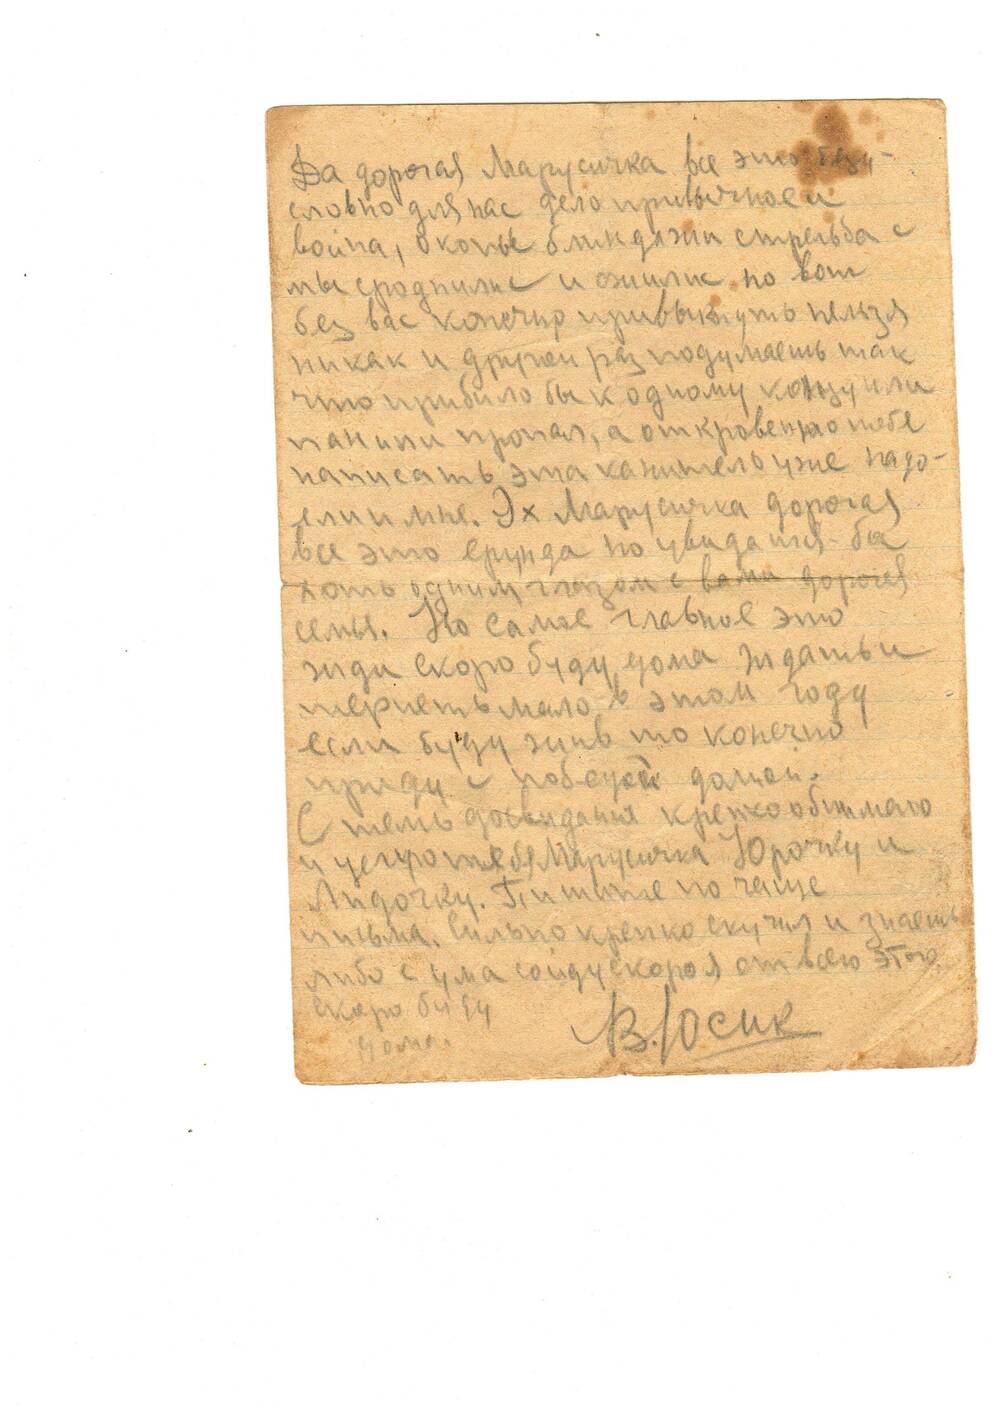 Да дорогая Марусичка все это безу-
словно для нас дело привычное и
война, окопы блиндажи стрельба с
мы сроднились и сжились но вот
без вас конечно привыкнуть нельзя
никак и другой раз подумаешь так
что прибило бы к одному концу или
пан или пропал, а откровенно тебе
написать эта канитель уже надо-
ели и мне. Эх Марусичка дорогая
все это ерунда но увидаться-бы
хоть одним глазом с вами дорогая
семья. Но самое главное это
жди скоро буду дома ждать и
терпеть мало в этом году
если буду жив то конечно
приду с победой домой.
С тем досвидания крепко обнимаю
и целую тебя Марусичка Юрочку и
Лидочку. Пишите по чаще
письма. Сильно крепко скучил и знаешь
либо с ума сойду скоро я от всего этого.
скоро буду
дома.
В. Юсик